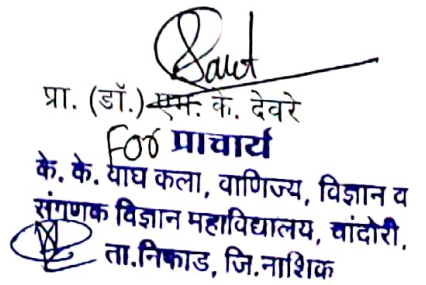 प्रा. (डॉ.) एम. के. देवरे
For प्राचार्य
के. के. वाघ कला, वाणिज्य, विज्ञान व
संगणक विज्ञान महाविद्यालय, चांदोरी,
ता.निफाड, जि.नाशिक